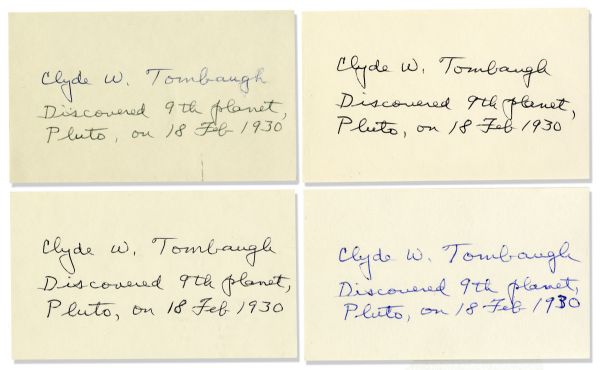 Clyde W. Tombaugh
Discovered 9th planet,
Pluto, on 18 Feb 1930
Clyde W. Tombaugh
Discovered 9th planet,
Pluto, on 18 Feb 1930
Clyde W. Tombaugh
Discovered 9th planet,
Pluto, on 18 Feb 1930
Clyde W. Tombaugh
Discovered 9th planet,
Pluto, on 18 Feb 1930